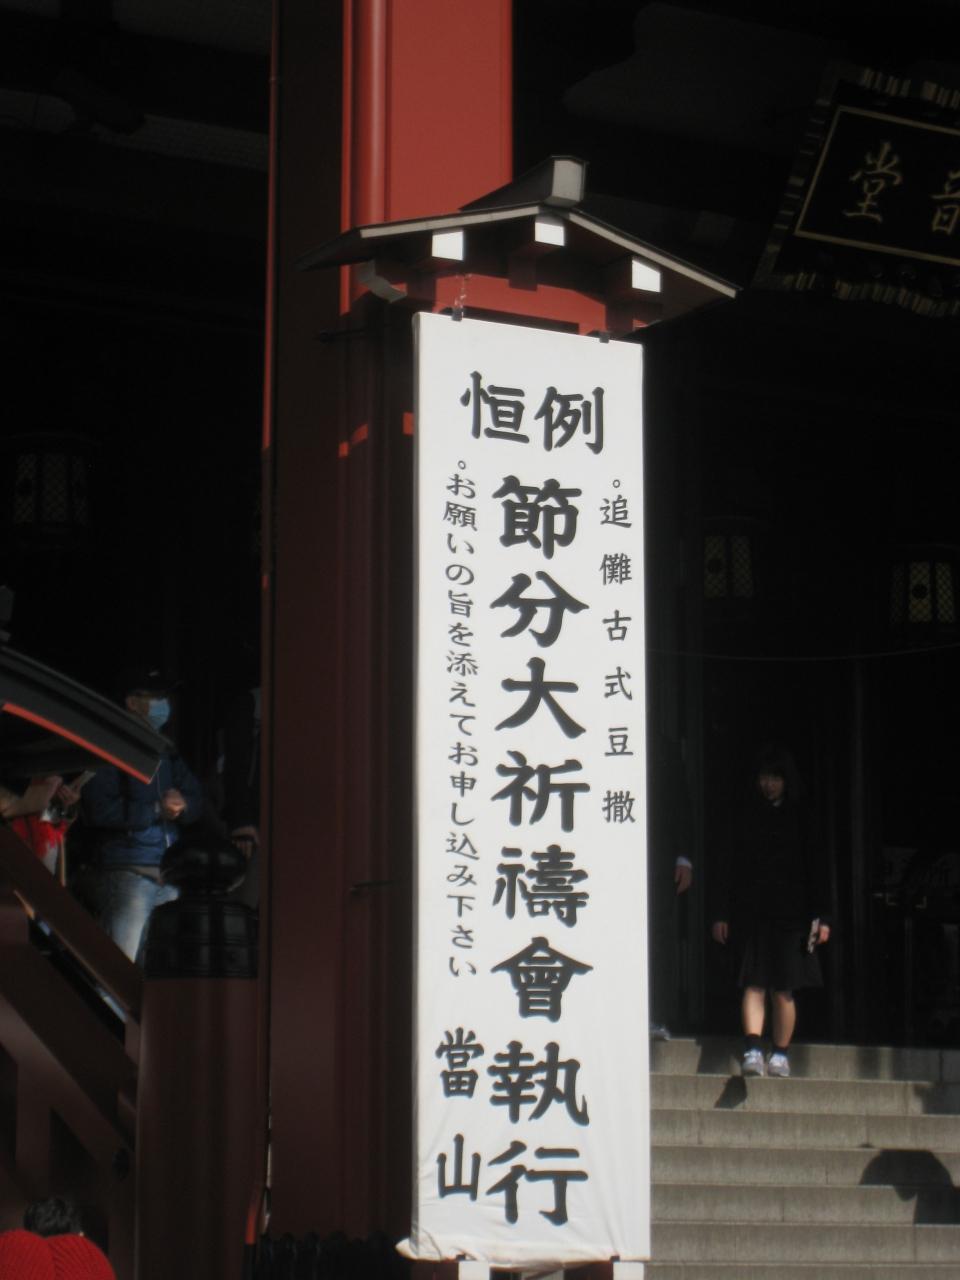 恒例
。追儺古式豆撒
節分大祈禱會執行
。お願いの旨を添えてお申し込み下さい
當山
音堂